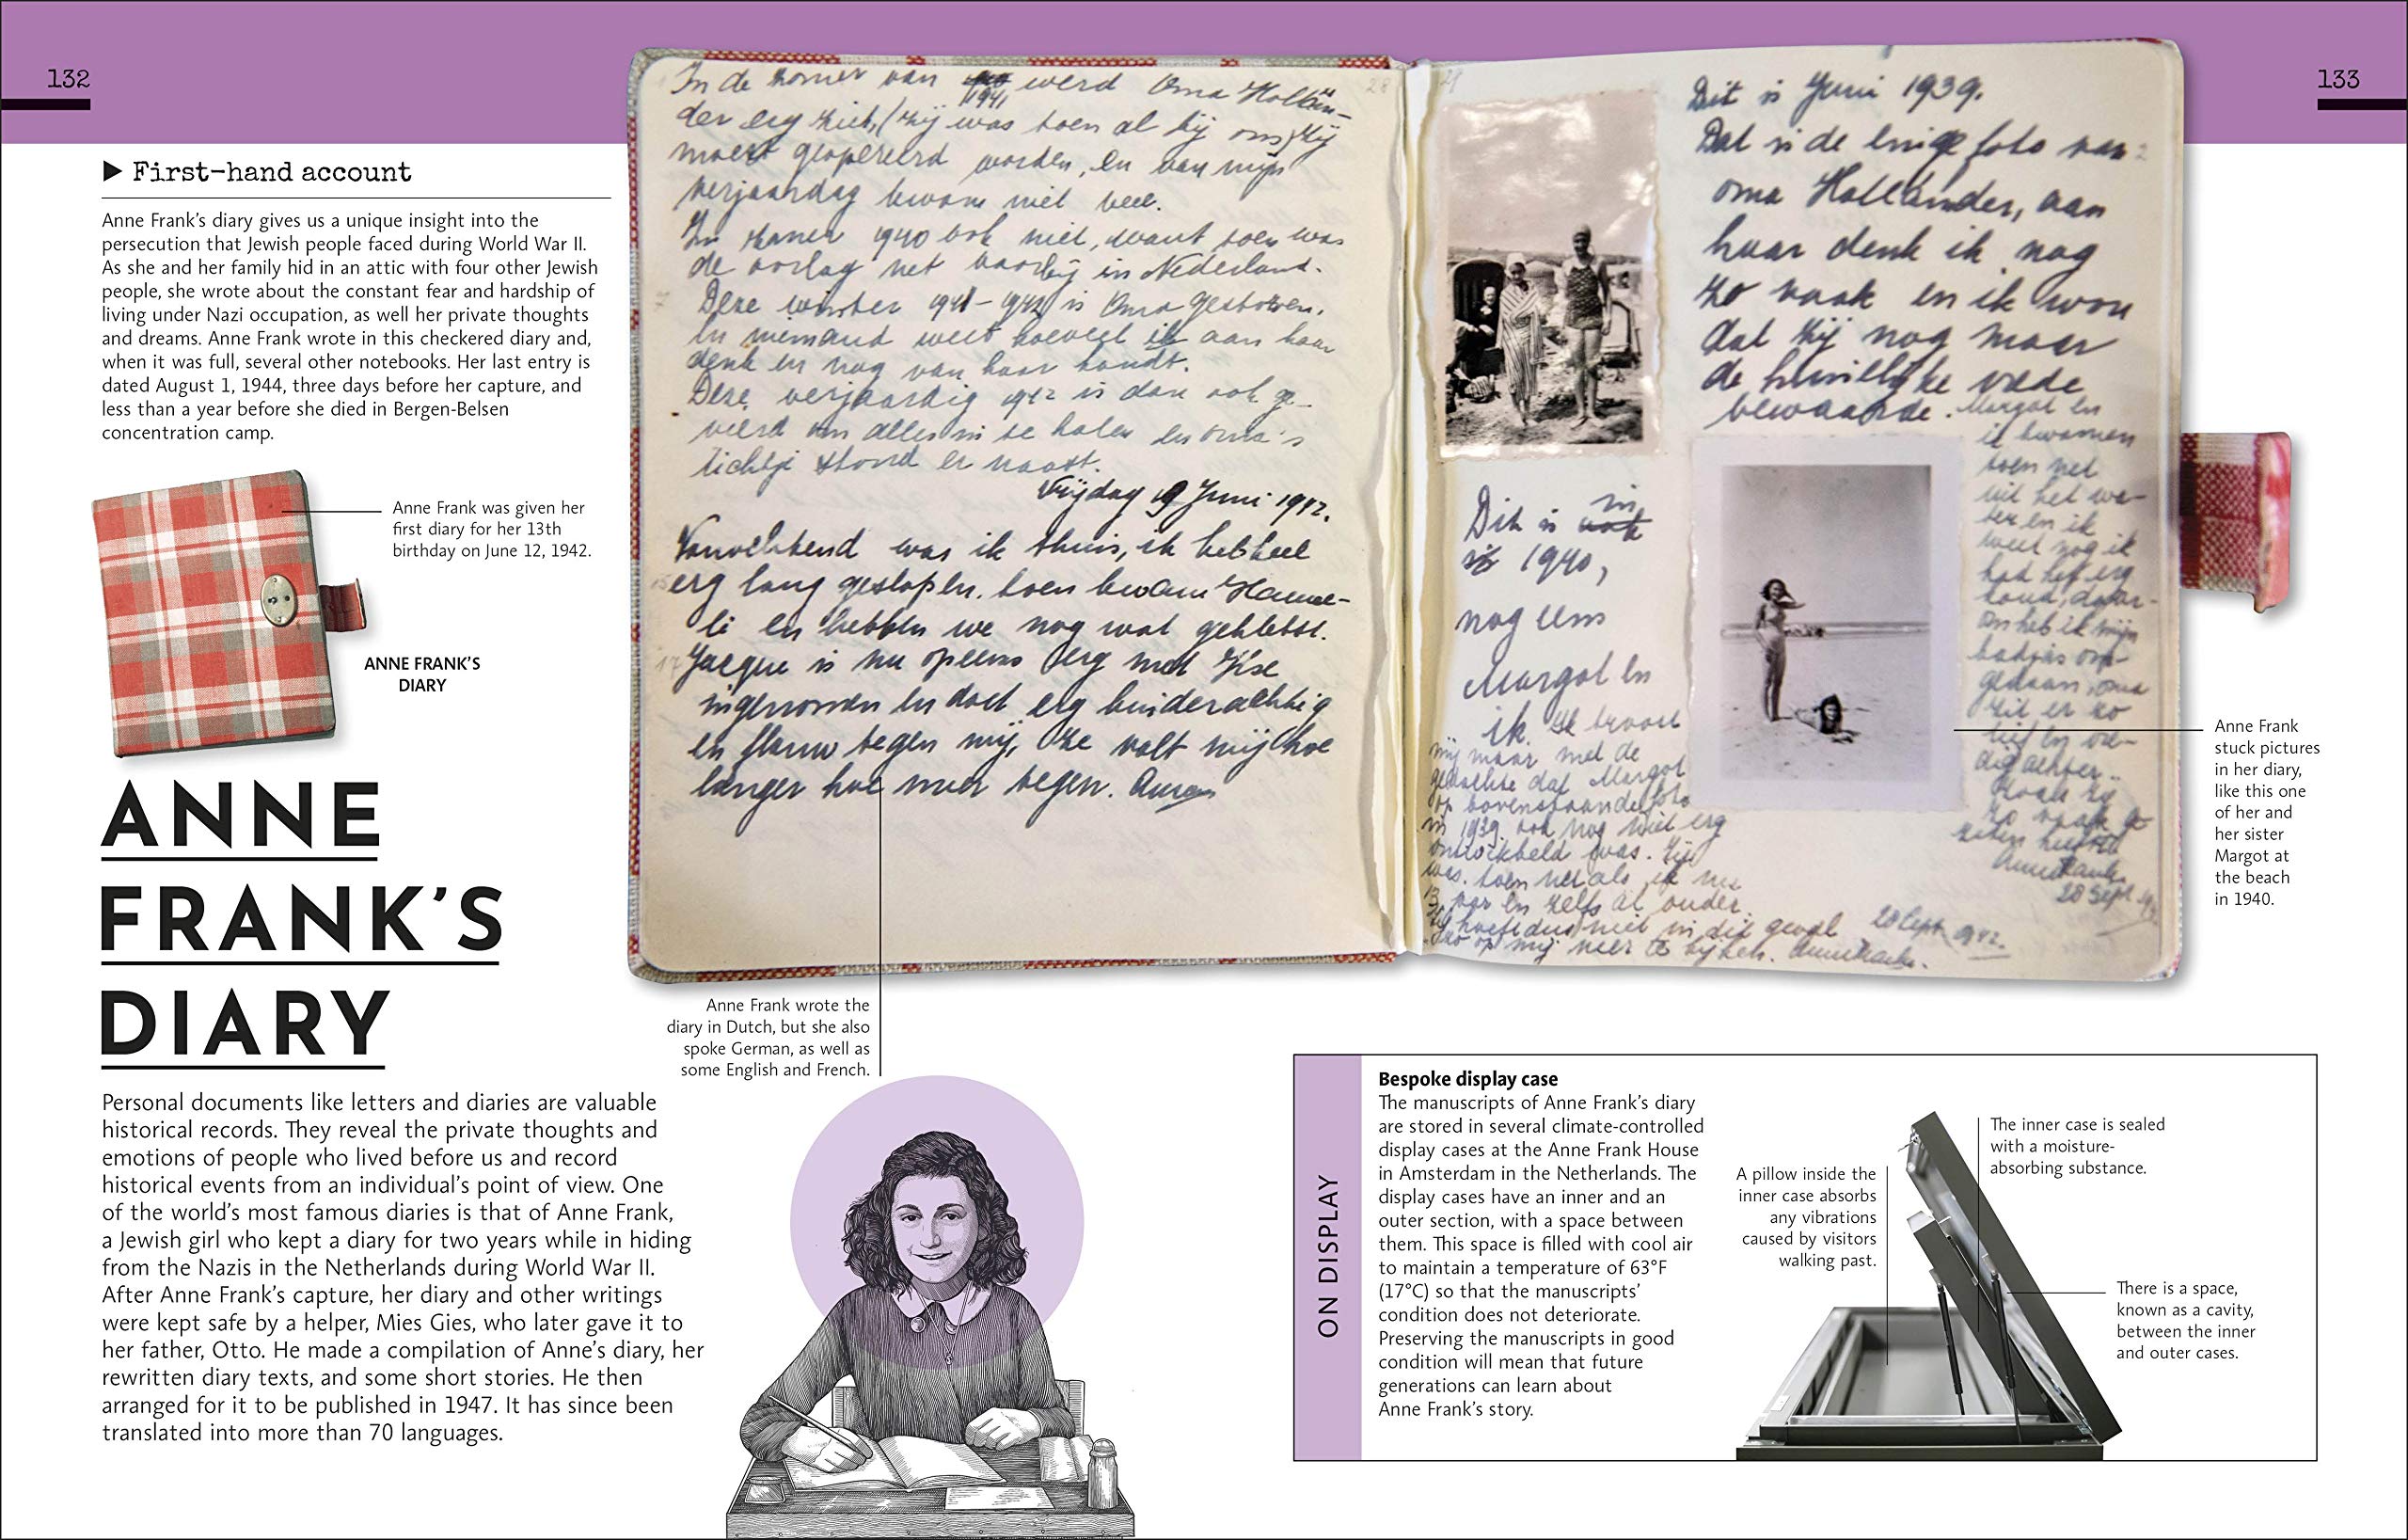 132
133
First-hand account
Anne Frank's diary gives us a unique insight into the
persecution that Jewish people faced during World War II.
As she and her family hid in an attic with four other Jewish
people, she wrote about the constant fear and hardship of
living under Nazi occupation, as well her private thoughts
and dreams. Anne Frank wrote in this checkered diary and,
when it was full, several other notebooks. Her last entry is
dated August 1, 1944, three days before her capture, and
less than a year before she died in Bergen-Belsen
concentration camp.
Anne Frank was given her
first diary for her 13th
birthday on June 12, 1942.
ANNE FRANK'S
DIARY
ANNE
FRANK'S
DIARY
Personal documents like letters and diaries are valuable
historical records. They reveal the private thoughts and
emotions of people who lived before us and record
historical events from an individual's point of view. One
of the world's most famous diaries is that of Anne Frank,
a Jewish girl who kept a diary for two years while in hiding
from the Nazis in the Netherlands during World War II.
After Anne Frank's capture, her diary and other writings
were kept safe by a helper, Mies Gies, who later gave it to
her father, Otto. He made a compilation of Anne's diary, her
rewritten diary texts, and some short stories. He then
arranged for it to be published in 1947. It has since been
translated into more than 70 languages.
28
In de zomer van 1941 werd Oma Hollän-
der erg ziek, (zij was toen al bij ons) zij
moest geopereerd worden, en van mijn
verjaardag kwam niet veel.
In zomer 1940 ook niet, want toen was
de oorlog net voorbij in Nederland.
Deze winter 1941-1942 is Oma gestorven.
En niemand weet hoeveel ik aan haar
denk en nog van haar houdt.
Deze verjaardig 1942 is dan ook ge-
vierd om alles in te halen en oma's
lichtje stond er naast.
Vrijdag 19 Juni 1942.
Vanochtend was ik thuis, ik heb heel
erg lang geslapen, toen kwam Hanne-
li en hebben we nog wat gekletst.
Jacque is nu opeens erg met Ilse
ingenomen en doet erg kinderachtig
en flauw tegen mij, ze valt mij hoe
langer hoe meer tegen.
29
Dit is Juni 1939.
Dat is de enige foto van
oma Holländer, aan
haar denk ik nog
zo vaak en ik wou
dat zij nog maar
de huiselijke vrede
bewaarde. Margot en
ik kwamen
toen net
uit het wa-
ter en ik
weet nog ik
had het erg
koud, daar-
om heb ik mijn
badjas om-
gedaan, oma
zit er zo
lief en vre-
dig achter.
zo vaak
Anne Frank.
28 Sept.
Dit is in
1940,
nog eens
Margot en
ik. Ik troost
mij maar met de
gedachte dat Margot
op bovenstaande foto
in 1939 ook nog niet erg
ontwikkeld was. Zij
was toen net als ik nu
13 jaar en zelfs al ouder.
Zij hoeft dus niet in dit geval
zo op mij neer te kijken. Anne Frank.
28 Sept. 1942.
Anne Frank
stuck pictures
in her diary,
like this one
of her and
her sister
Margot at
the beach
in 1940.
Anne Frank wrote the
diary in Dutch, but she also
spoke German, as well as
some English and French.
ON DISPLAY
Bespoke display case
The manuscripts of Anne Frank's diary
are stored in several climate-controlled
display cases at the Anne Frank House
in Amsterdam in the Netherlands. The
display cases have an inner and an
outer section, with a space between
them. This space is filled with cool air
to maintain a temperature of 63°F
(17°C) so that the manuscripts'
condition does not deteriorate.
Preserving the manuscripts in good
condition will mean that future
generations can learn about
Anne Frank's story.
A pillow inside the
inner case absorbs
any vibrations
caused by visitors
walking past.
The inner case is sealed
with a moisture-
absorbing substance.
There is a space,
known as a cavity,
between the inner
and outer cases.